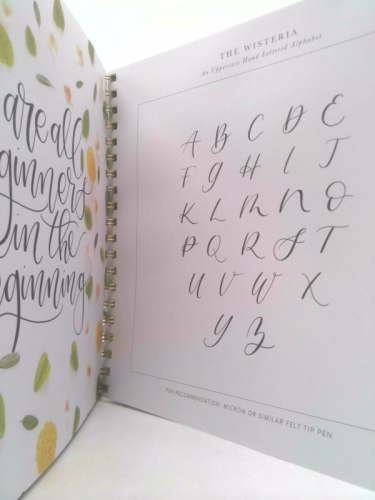 are all
ginners
in the
ginning
THE WISTERIA
An Uppercase Hand Lettered Alphabet
A B C D E
F G H I J
K L M N O
P Q R S T
U V W X
Y Z
PEN RECOMMENDATION: MICRON OR SIMILAR FELT TIP PEN